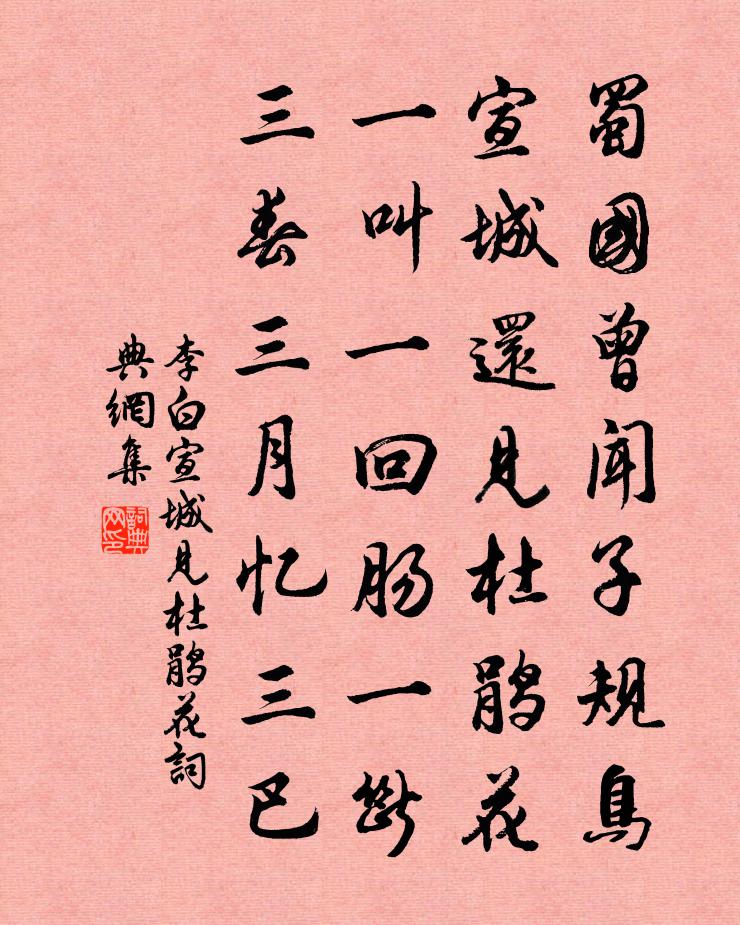 蜀國曾聞子規鳥
宣城還見杜鹃花
一叫一回肠一斷
三春三月忆三巴
李白宣城見杜鹃花詞
典網集
詞典
网印